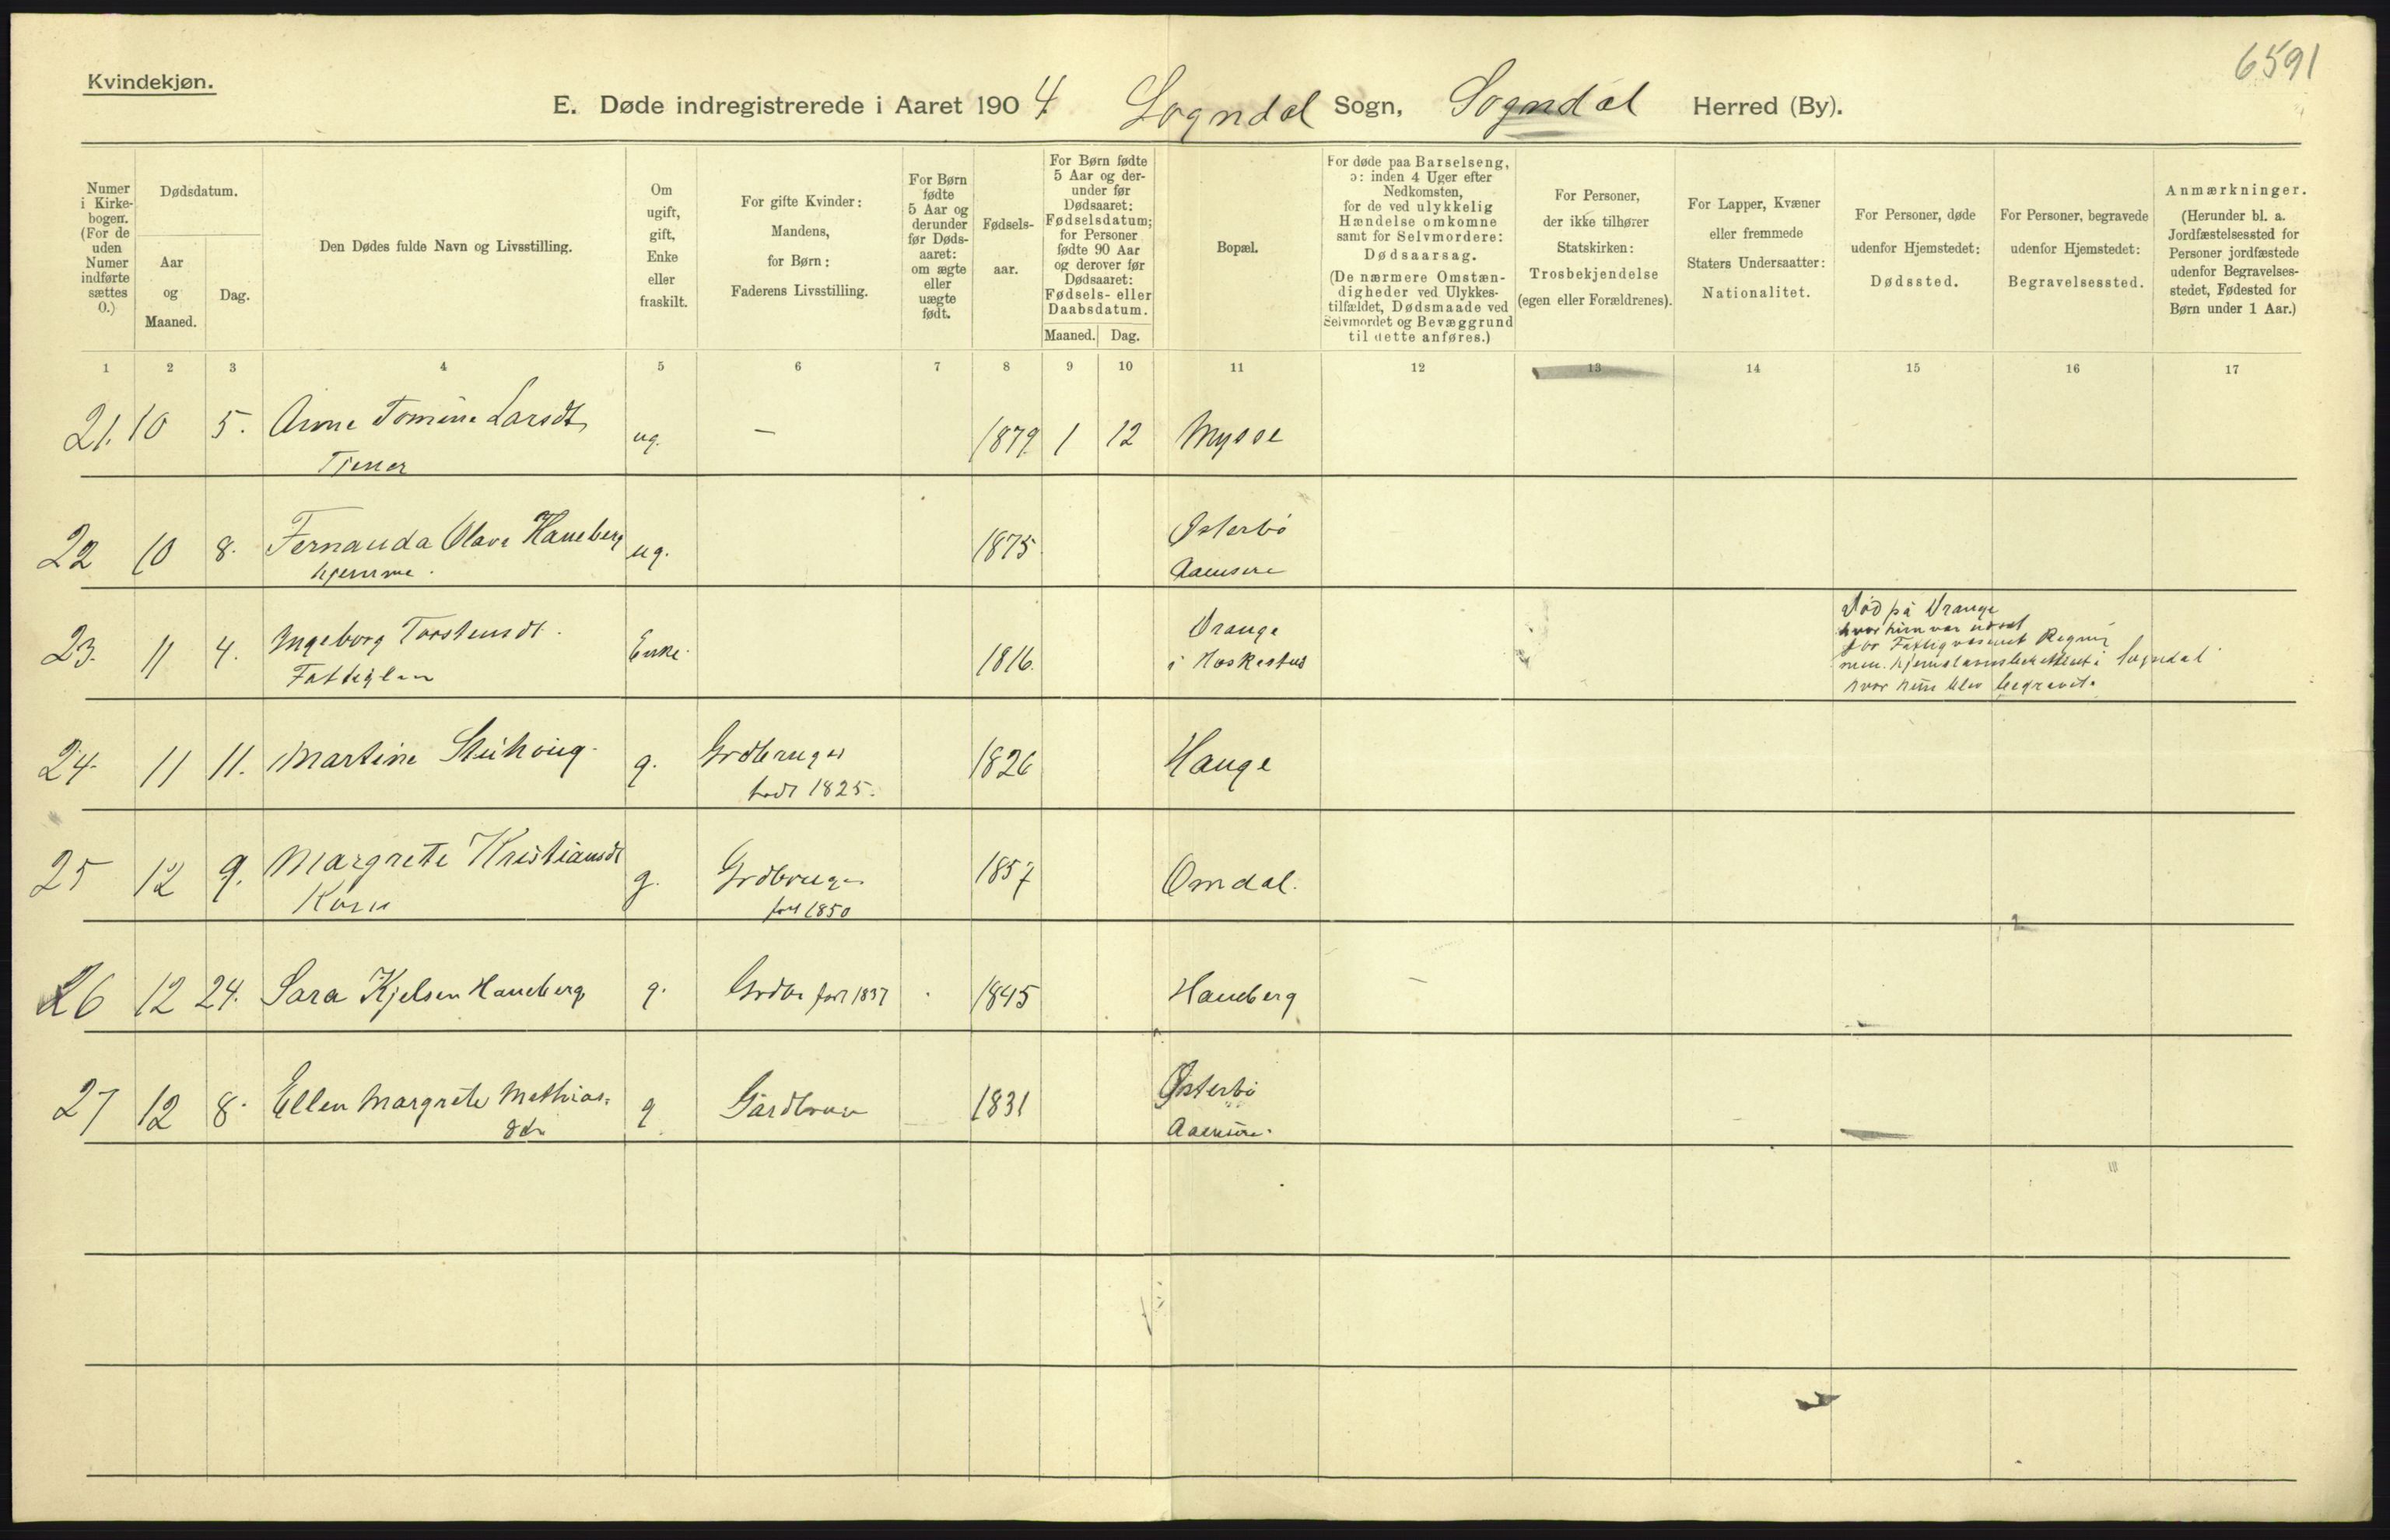 6591
Kvindekjøn.
E. Døde indregistrerede i Aaret 1904. Sogndal Sogn, Sogndal Herred (By).
Numer
i Kirke-
bogen.
(For de
uden
Numer
indførte
sættes
0.)
Dødsdatum.
Aar
og
Maaned.
Dag.
Den Dødes fulde Navn og Livsstilling.
Om
ugift,
gift,
Enke
eller
fraskilt.
For gifte Kvinder:
Mandens,
for Børn:
Faderens Livsstilling.
For Børn
fødte
5 Aar og
derunder
før Døds-
aaret:
om ægte
eller
uægte
født.
Fødsels-
aar.
For Børn fødte
5 Aar og der-
under før
Dødsaaret:
Fødselsdatum;
for Personer
fødte 90 Aar
og derover før
Dødsaaret:
Fødsels- eller
Daabsdatum.
Maaned. Dag.
Bopæl.
For døde paa Barselseng,
ɔ: inden 4 Uger efter
Nedkomsten,
for de ved ulykkelig
Hændelse omkomne
samt for Selvmordere:
Dødsaarsag.
(De nærmere Omstæn-
digheder ved Ulykkes-
tilfældet, Dødsmaade ved
Selvmordet og Bevæggrund
til dette anføres.)
For Personer,
der ikke tilhører
Statskirken:
Trosbekjendelse
(egen eller Forældrenes).
For Lapper, Kvæner
eller fremmede
Staters Undersaatter:
Nationalitet.
For Personer, døde
udenfor Hjemstedet:
Dødssted.
For Personer, begravede
udenfor Hjemstedet:
Begravelsessted.
Anmærkninger.
(Herunder bl. a.
Jordfæstelsessted for
Personer jordfæstede
udenfor Begravelses-
stedet, Fødested for
Børn under 1 Aar.)
1 2 3 4 5 6 7 8 9 10 11 12 13 14 15 16 17
21. 10 5. Anne Tomine Larsdt ug. — 1879 1 12 Mysse
Tjener
22 10 8. Fernanda Olava Haneberg ug. 1875 Østerbö
hjemme. Aaensire
23. 11 4. Ingeborg Torstensdt. Enke. 1816. Drange
Fattiglem i Hoskestad
Död på Drange
hvor hun var udsat
for Fattigvæsenet Regning
hvor hun blev begravet.
24. 11 11. Martine g. Grdbruger 1826 Hauge
født 1825.
25 12 9. Margrete Kristiansdt g. Grdbruger 1857 Omdal.
født 1850
26 12 24. Sara Kjelsen Haneberg g. Grdbr født 1837 1845 Haneberg
27 12 8. Ellen Margrete Mathias- g Gårdbrur 1831 Østerbö
dtr Aaensire.